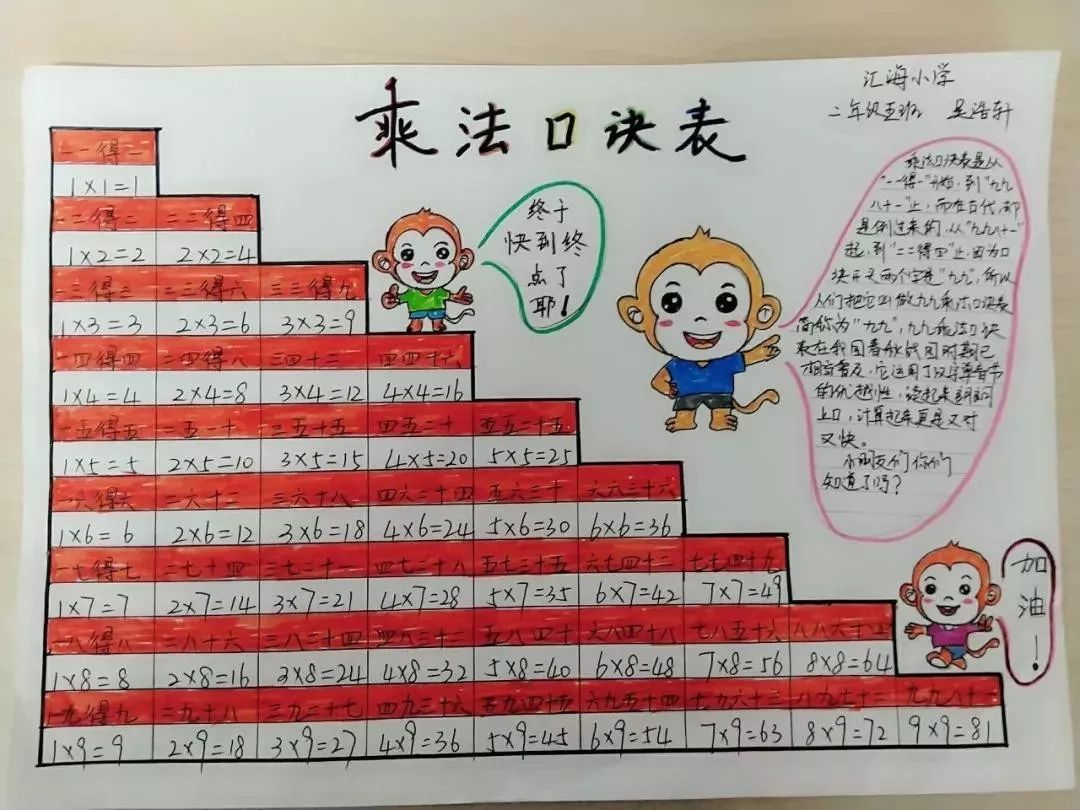 乘法口诀表
汇海小学
二年级五班 吴浩轩
一一得一
1×1=1
一二得二 二二得四
1×2=2 2×2=4
一三得三 二三得六 三三得九
1×3=3 2×3=6 3×3=9
一四得四 二四得八 三四十二 四四十六
1×4=4 2×4=8 3×4=12 4×4=16
一五得五 二五一十 三五十五 四五二十 五五二十五
1×5=5 2×5=10 3×5=15 4×5=20 5×5=25
一六得六 二六十二 三六十八 四六二十四 五六三十 六六三十六
1×6=6 2×6=12 3×6=18 4×6=24 5×6=30 6×6=36
一七得七 二七十四 三七二十一 四七二十八 五七三十五 六七四十二 七七四十九
1×7=7 2×7=14 3×7=21 4×7=28 5×7=35 6×7=42 7×7=49
一八得八 二八十六 三八二十四 四八三十二 五八四十 六八四十八 七八五十六 八八六十四
1×8=8 2×8=16 3×8=24 4×8=32 5×8=40 6×8=48 7×8=56 8×8=64
一九得九 二九十八 三九二十七 四九三十六 五九四十五 六九五十四 七九六十三 八九七十二 九九八十一
1×9=9 2×9=18 3×9=27 4×9=36 5×9=45 6×9=54 7×9=63 8×9=72 9×9=81
终于
快到终
点了
耶!
乘法口诀表是从
"一一得一"开始,到"九九
八十一"止,而在古代,却
是倒过来的,从"九九八十一"
起,到"二二得四"止,因为口
诀开头两个字是"九九",所以
人们把它叫做九九乘法口诀表
简称为"九九",九九乘法口诀
表在我国春秋战国时期已
相当普及,它运用了汉字单音节
的优越性,读起来朗朗
上口,计算起来更是又对
又快。
小朋友们你们
知道了吗?
加
油
!